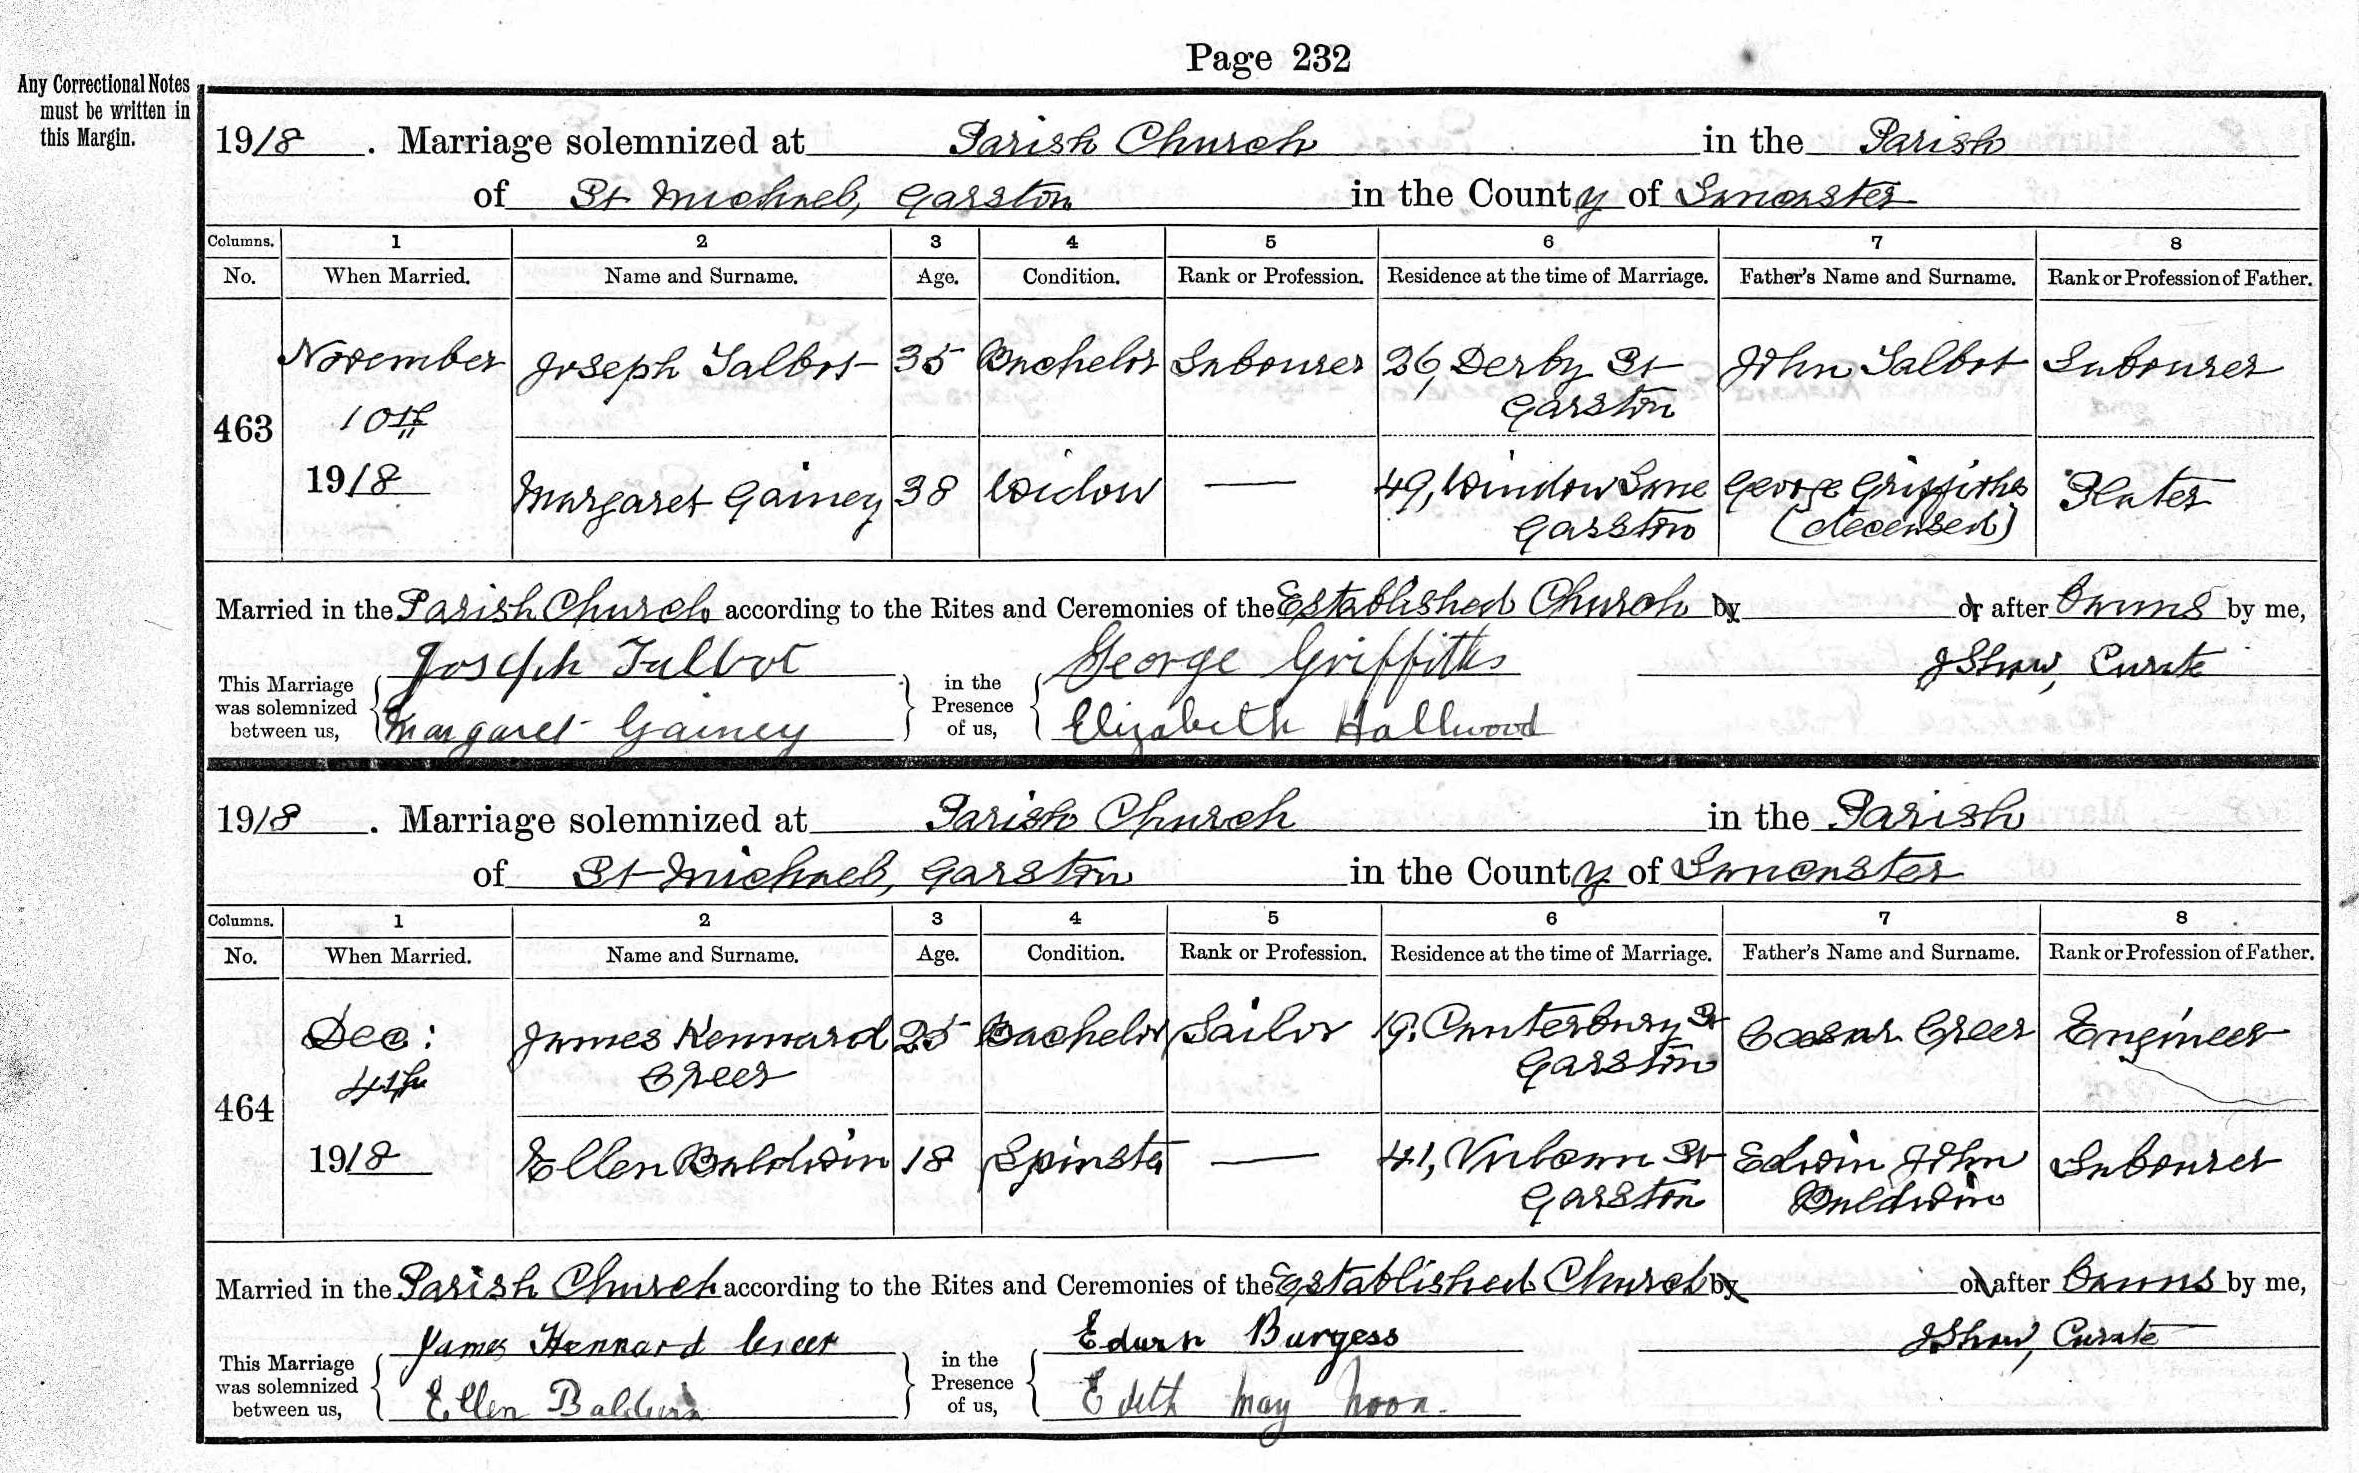 Page 232
Any Correctional Notes
must be written in
this Margin.
1918. Marriage solemnized at Parish Church in the Parish
of St Michael, Garston in the County of Lancaster
Columns. 1 2 3 4 5 6 7 8
No. When Married. Name and Surname. Age. Condition. Rank or Profession. Residence at the time of Marriage. Father's Name and Surname. Rank or Profession of Father.
November Joseph Talbot 35 Bachelor Labourer 26, Derby St John Talbot Labourer
463 10th Garston
1918 Margaret Gainey 38 Widow — 49, Window Lane George Griffiths Plater
Garston (deceased)
Married in the Parish Church according to the Rites and Ceremonies of the Established Church by or after Banns by me,
Joseph Talbot George Griffiths J Shaw, Curate
This Marriage in the
was solemnized Presence
between us, of us,
Margaret Gainey Elizabeth Hallwood
1918. Marriage solemnized at Parish Church in the Parish
of St Michael, Garston in the County of Lancaster
Columns. 1 2 3 4 5 6 7 8
No. When Married. Name and Surname. Age. Condition. Rank or Profession. Residence at the time of Marriage. Father's Name and Surname. Rank or Profession of Father.
Dec: James Kennard 25 Bachelor Sailor 19, Canterbury St Caesar Creer Engineer
464 4th Creer Garston
1918 Ellen Baldwin 18 Spinster — 41, Vulcan St Edwin John Labourer
Garston Baldwin
Married in the Parish Church according to the Rites and Ceremonies of the Established Church by or after Banns by me,
James Kennard Creer Burgess J Shaw, Curate
This Marriage in the
was solemnized Presence
between us, of us,
Ellen Baldwin Edith May